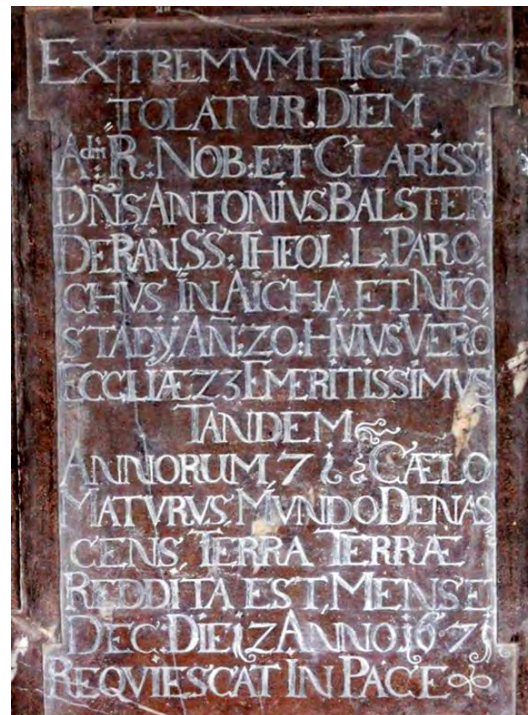 EXTREMVM HIC PRÆS
TOLATUR DIEM
Adm R: NOB: ET CLARISSI
DÑS ANTONIVS BALSTER
DE RAIN SS: THEOL: L, PARO,
CHVS IN AICHA, ET NEO
STADŸ AÑ: 20: HVIVS VERO
ECCLIÆ 23 EMERITISSIMVS
TANDEM
ANNORUM 71 CÆLO
MATVRVS, MVNDO DENAS
CENS, TERRA TERRÆ
REDDITA EST, MENSE
DEC: DIE 12 ANNO 1671
REQVIESCAT IN PACE